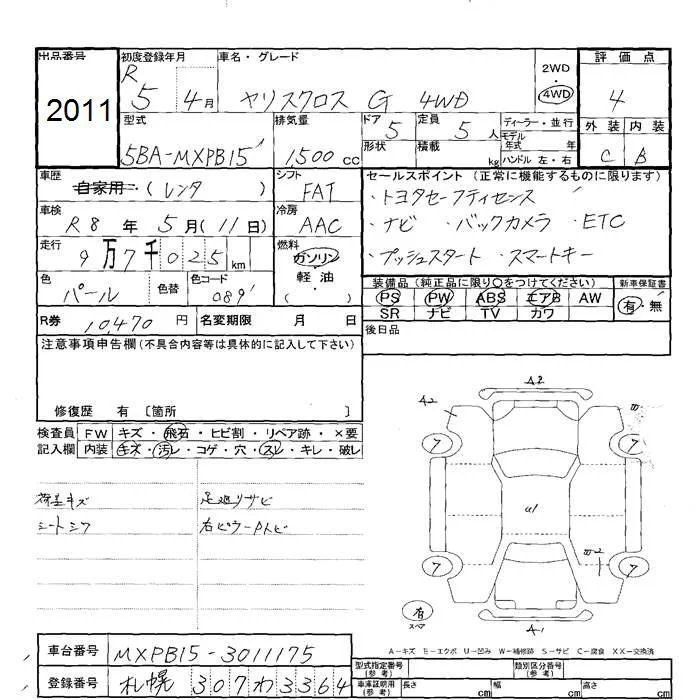 出品番号 初度登録年月 車名・グレード 2WD・4WD 評価点
2011 R 5 4月 ヤリスクロス G 4WD 4
型式 排気量 ドア 5 定員 5人 ディーラー・並行 外装 内装
5BA-MXPB15 1,500cc 形状 積載 kg モデル年式 年 ハンドル 左・右 C B
車歴 自家用・(レンタ) シフト FAT セールスポイント(正常に機能するものに限ります)
車検 R8年5月(11日) 冷房 AAC ・トヨタセーフティセンス
走行 9万7千025km 燃料 ガソリン 軽油 ( ) ・ナビ ・バックカメラ ・ETC
色 パール 色替 色コード 089 ・プッシュスタート ・スマートキー
装備品(純正品に限り○をつけてください) 新車保証書
PS PW ABS エアB AW 有・無
SR ナビ TV カワ
R券 10,470円 名変期限 月 日 後日品
注意事項申告欄(不具合内容等は具体的に記入して下さい)
修復歴 有 〔箇所 〕
検査員記入欄 FW キズ・飛石・ヒビ割・リペア跡・×要
内装 キズ・汚レ・コゲ・穴・スレ・キレ・破レ
荷室キズ 足廻りサビ
シートシワ 右ピラートビ
A2
A2
7 7
U1
7 7
有
スペア
A1
A-キズ E-エクボ U-凹み W-補修跡 S-サビ C-腐食 XX-交換済
車台番号 MXPB15-3011175
型式指定番号(参考) 類別区分番号(参考)
登録番号 札幌 307わ3364
車庫証明用(参考) 長さ cm 幅 cm 高さ cm